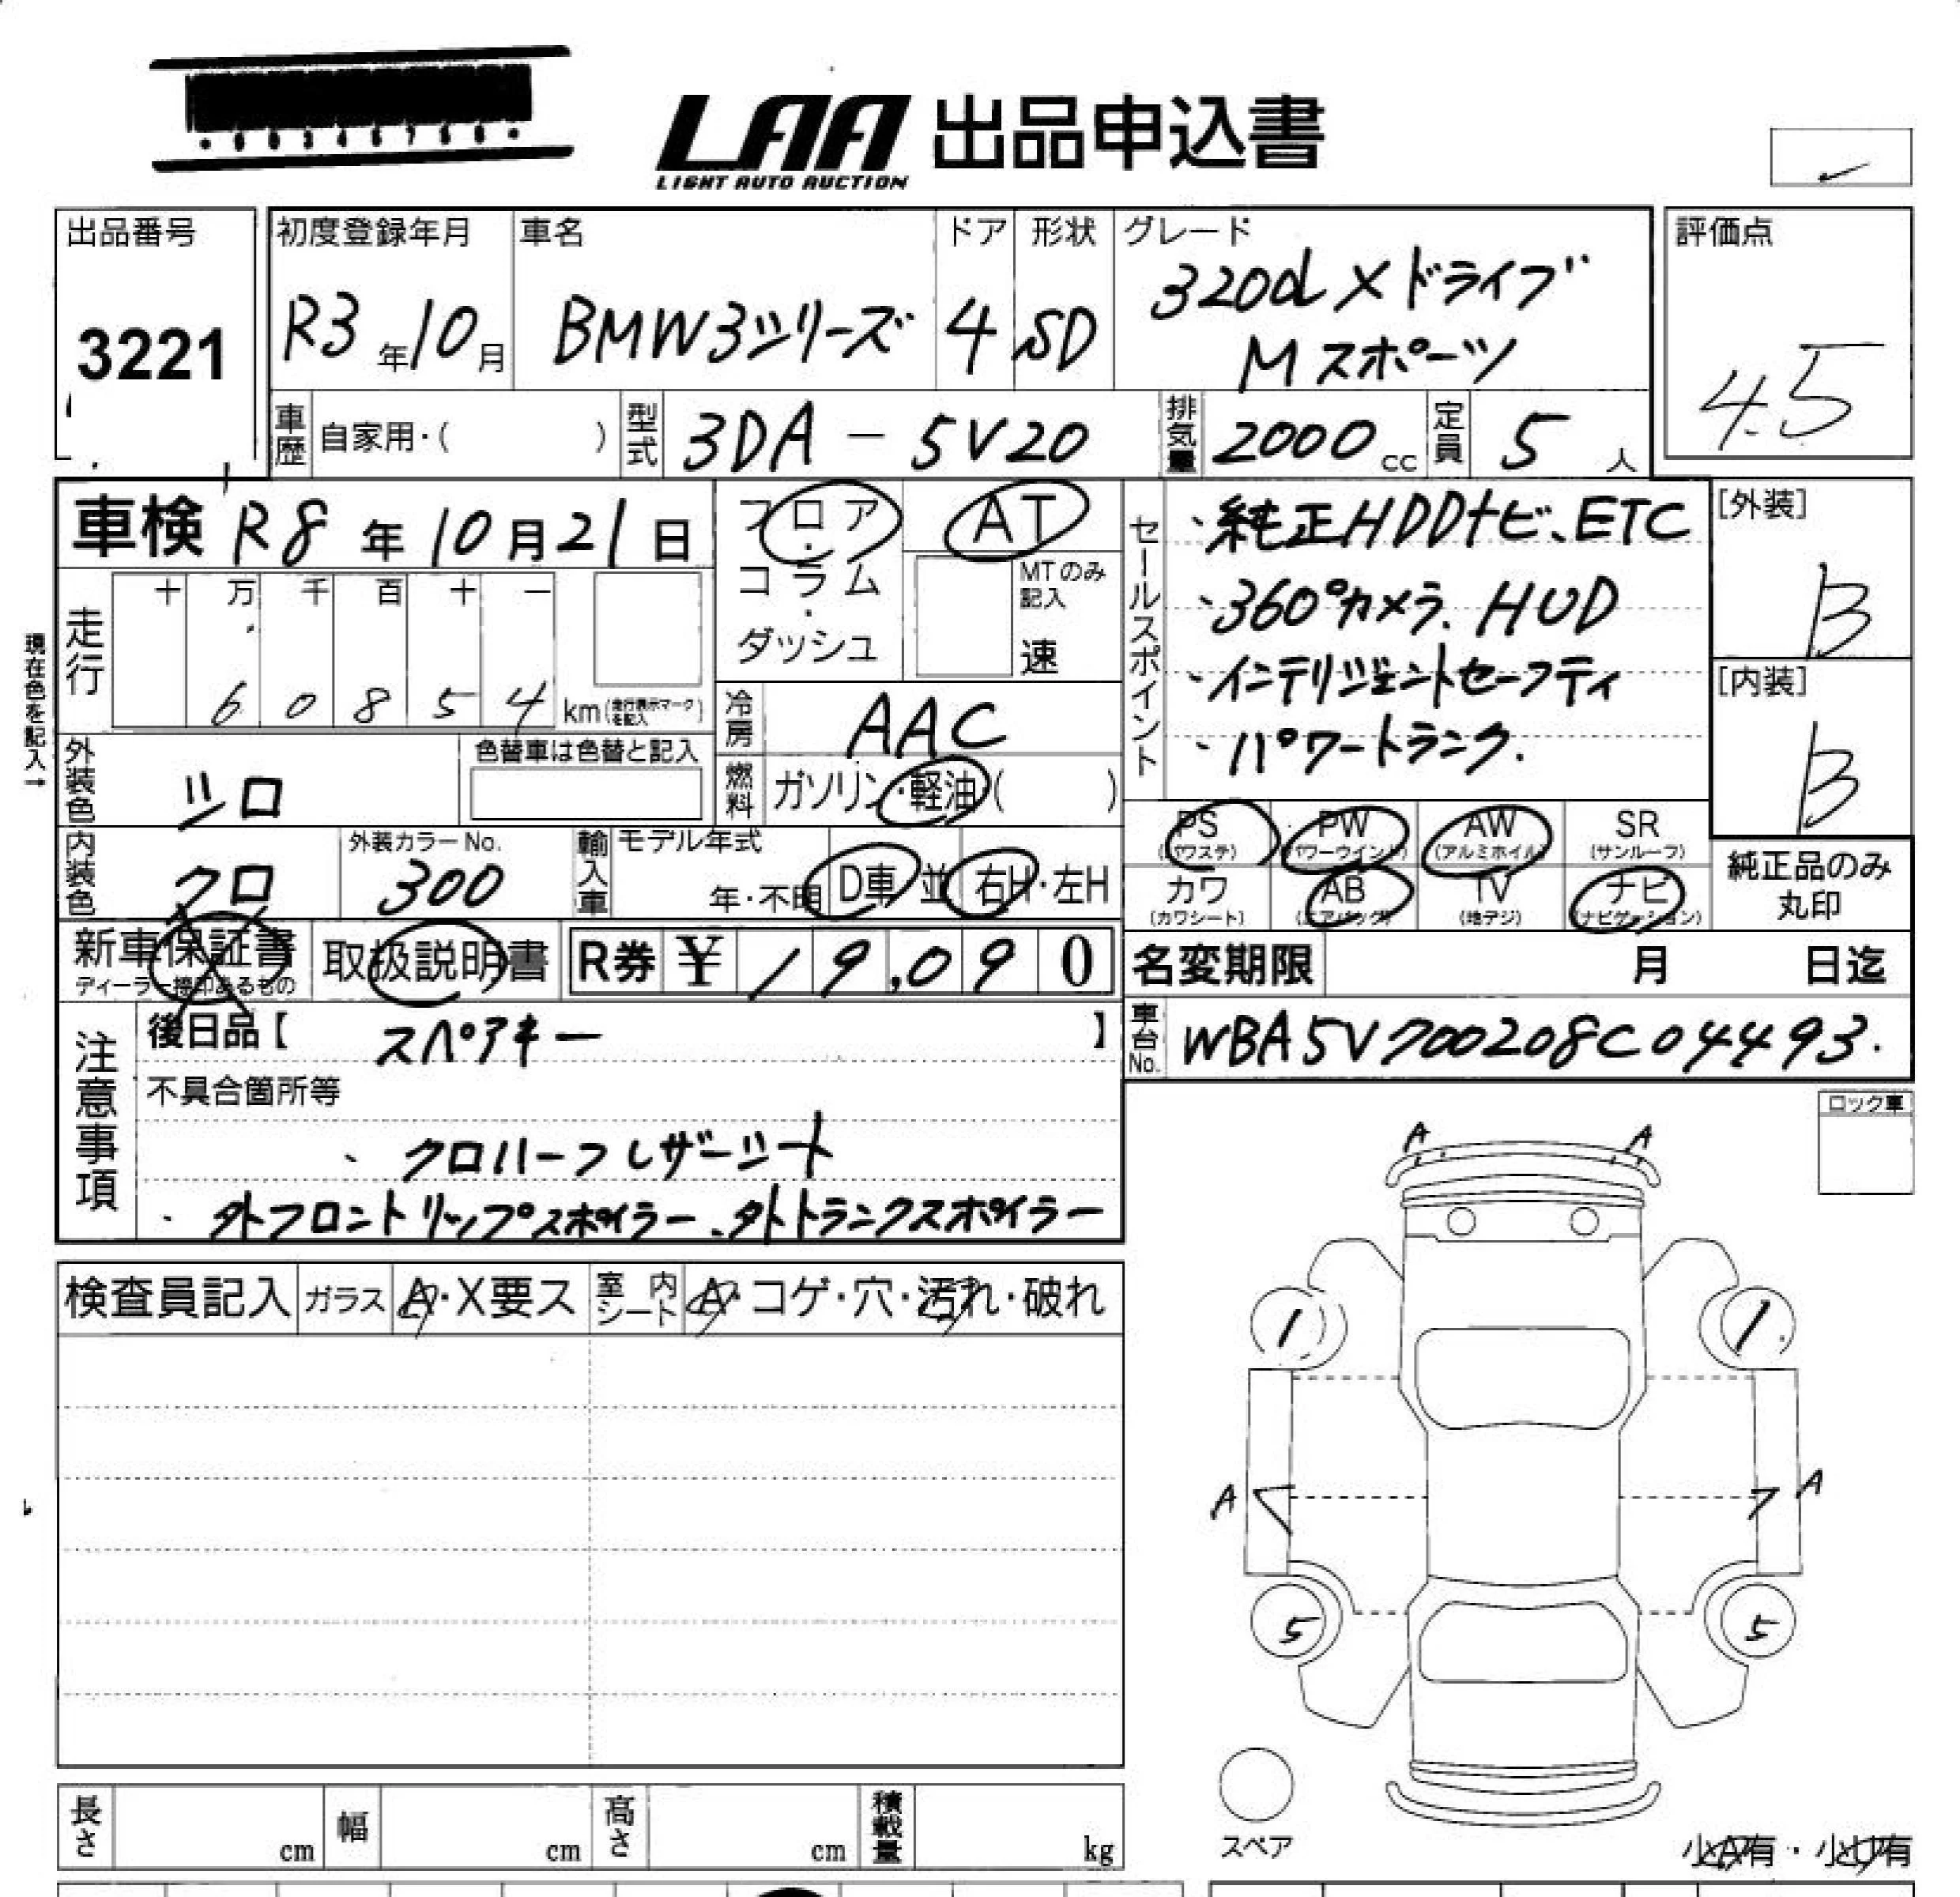 LAA 出品申込書
LIGHT AUTO AUCTION
出品番号
3221
初度登録年月
R3年10月
車名
BMW3シリーズ
ドア
4
形状
SD
グレード
320d Xドライブ
Mスポーツ
評価点
4.5
車歴 自家用・( )
型式 3DA-5V20
排気量 2000cc
定員 5人
車検 R8年10月21日
フロア・コラム・ダッシュ
AT
MTのみ記入
速
現在色を記入→
走行
十 万 千 百 十 一
6 0 8 5 4 km(走行表示マークを記入)
冷房 AAC
燃料 ガソリン・軽油( )
外装色 シロ
色替車は色替と記入
内装色 クロ
外装カラーNo.
300
輸入車
モデル年式
年・不明
D車 並
右H・左H
セールスポイント
、純正HDDナビ、ETC
、360°カメラ、HUD
・インテリジェントセーフティ
・パワートランク.
[外装]
B
[内装]
B
PS
(パワステ)
PW
(パワーウインド)
AW
(アルミホイル)
SR
(サンルーフ)
カワ
(カワシート)
AB
(エアバッグ)
TV
(地デジ)
ナビ
(ナビゲーション)
純正品のみ
丸印
新車保証書
ディーラー捺印あるもの
取扱説明書
R券 ¥ 19,090
名変期限 月 日迄
車台No. WBA5V700208C04493.
注意事項
後日品【 スペアキー 】
不具合箇所等
、クロハーフレザーシート
・外フロントリップスポイラー、外トランクスポイラー
ロック車
検査員記入
ガラス A・X要ス
室内シート A・コゲ・穴・汚れ・破れ
A A
1 1
A A
5 5
スペア
小A有・小U有
長さ cm
幅 cm
高さ cm
積載量 kg